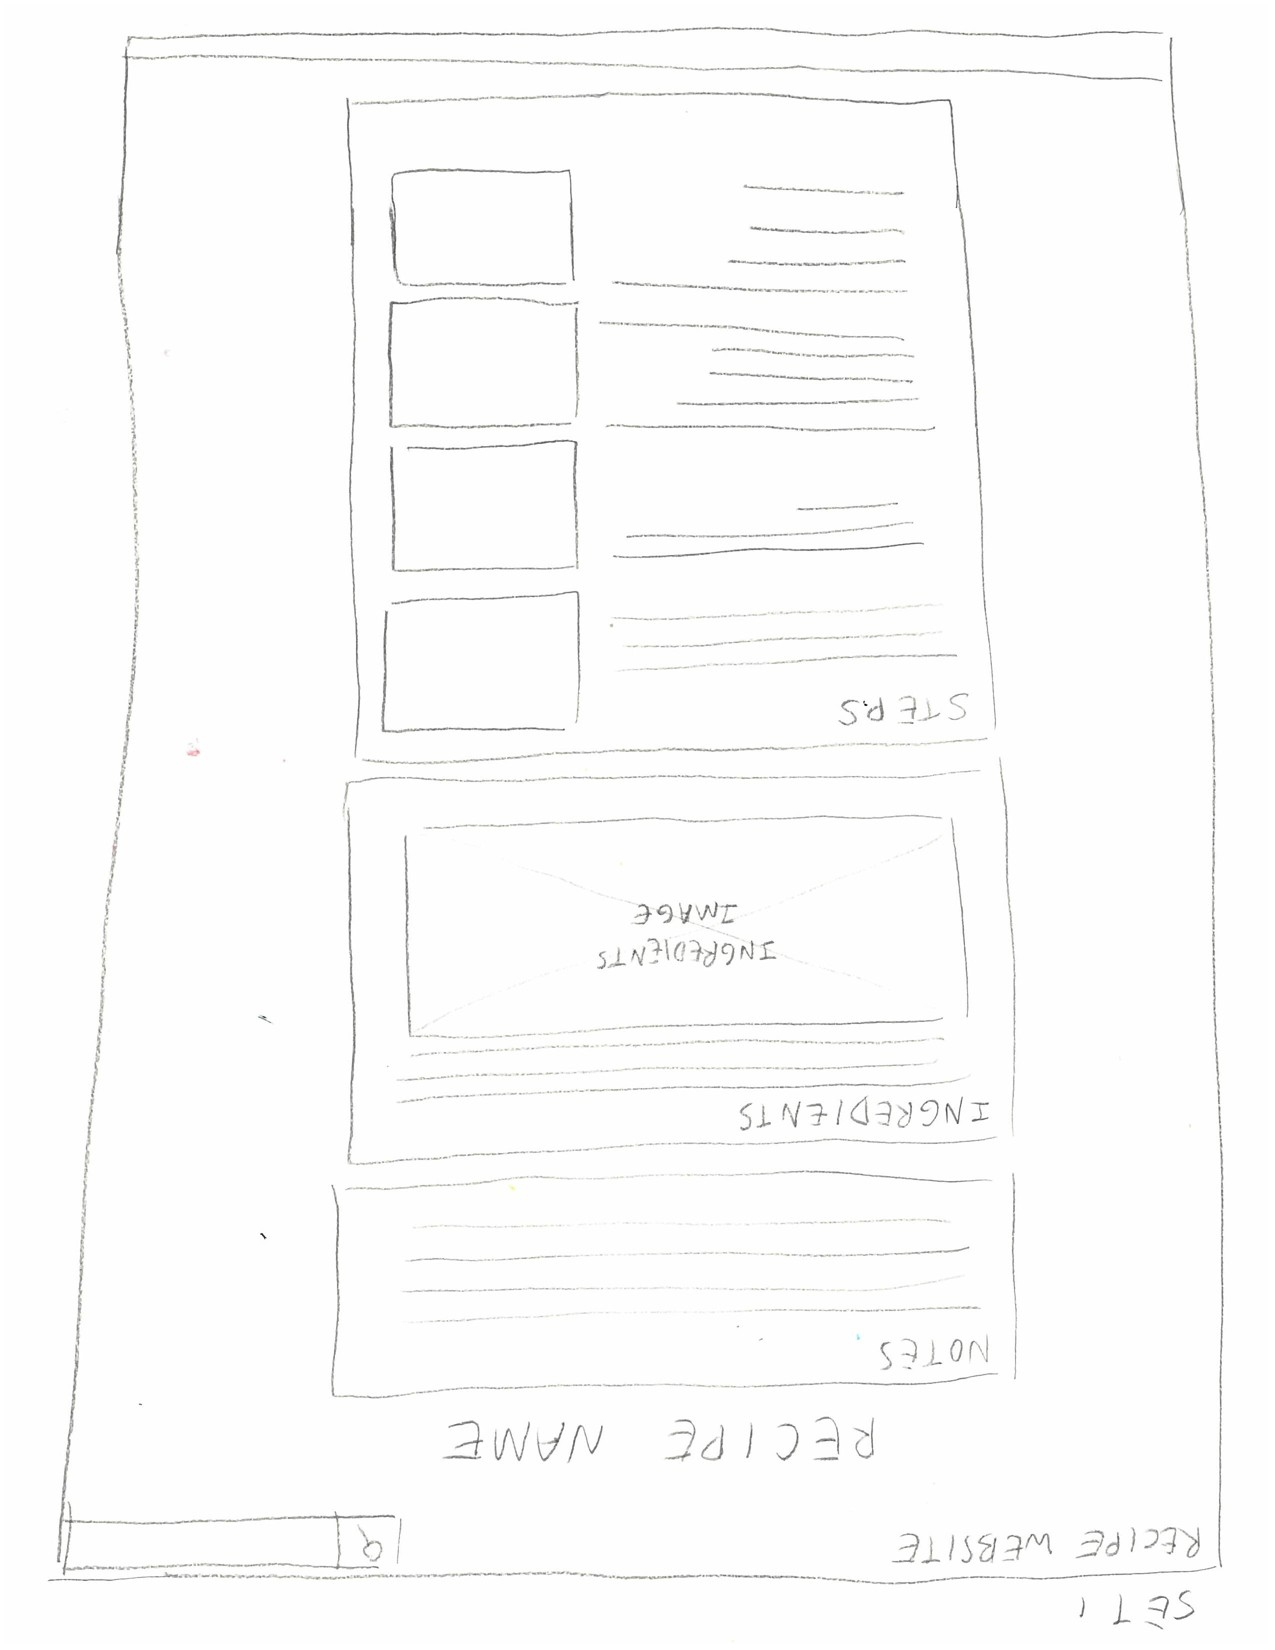 SET 1
RECIPE WEBSITE
RECIPE NAME
NOTES
INGREDIENTS
INGREDIENTS
IMAGE
STEPS